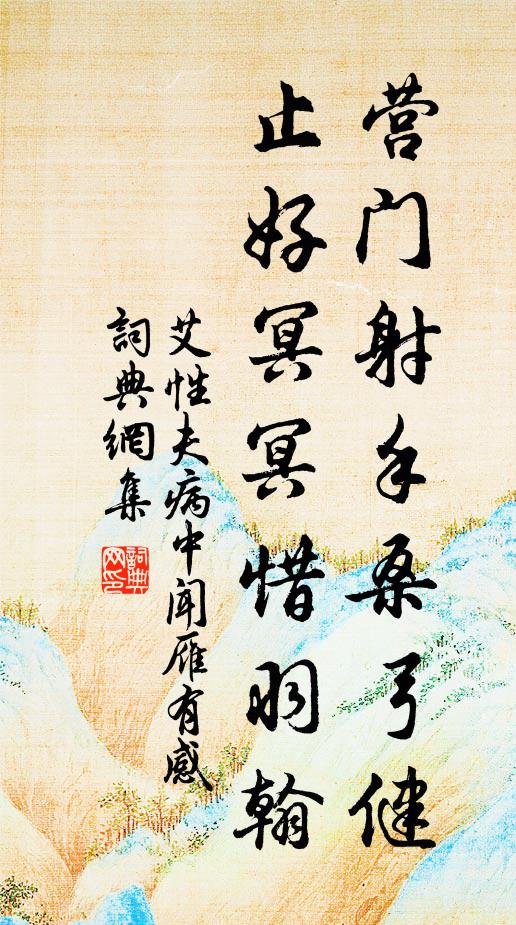 营门射手桑弓健
止好冥冥惜羽翰
艾性夫病中闻雁有感
詞典網集
詞典网印